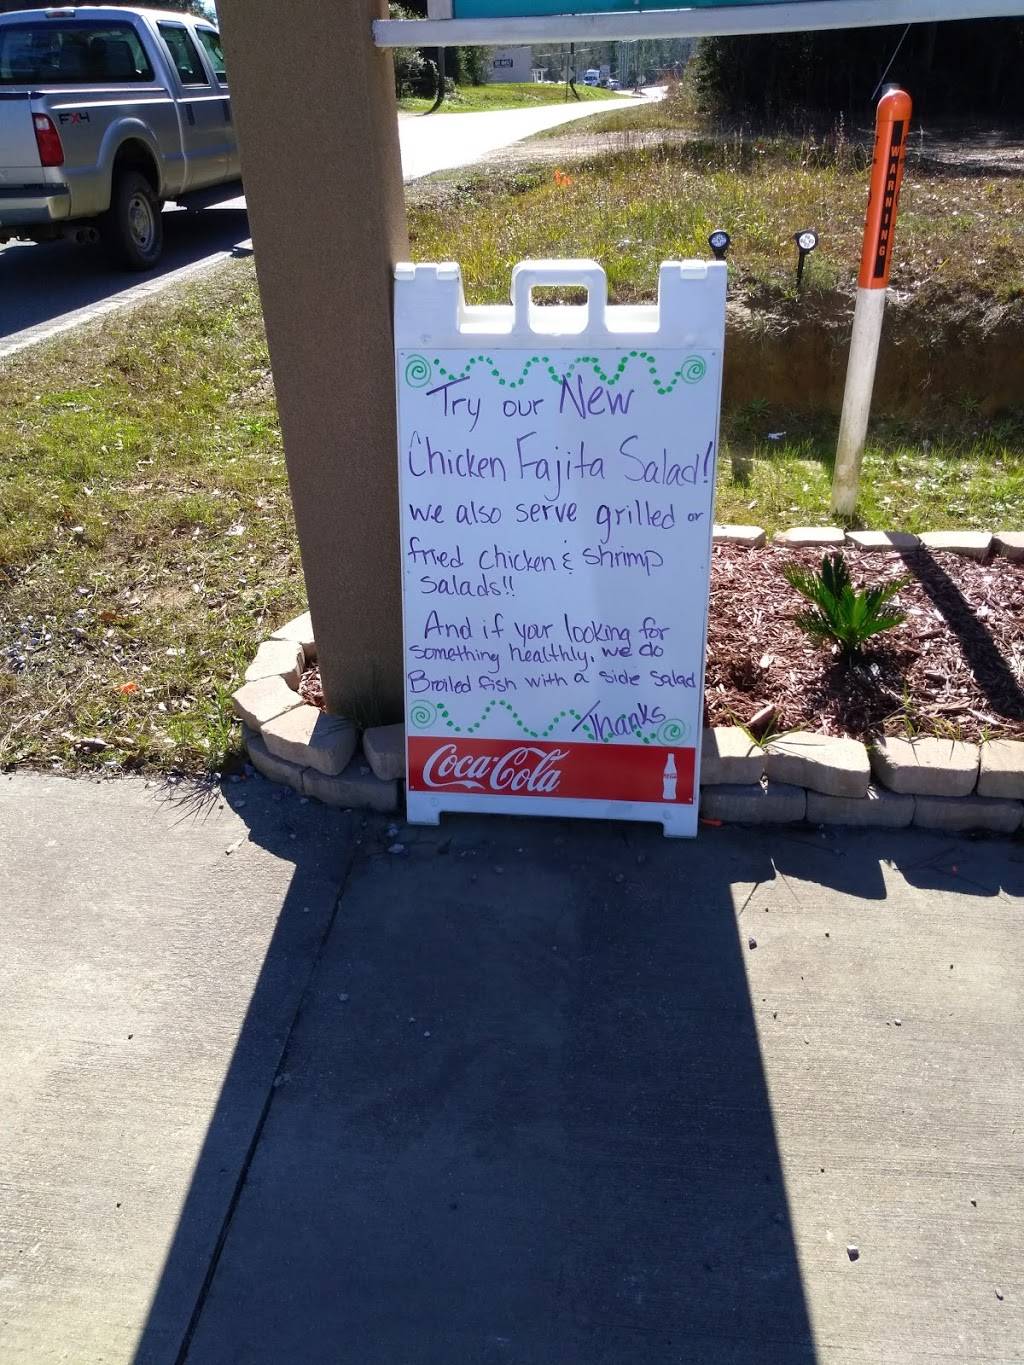 FX4
WARNING
Try our New
Chicken Fajita Salad!
we also serve grilled or
fried chicken & shrimp
salads!!
And if your looking for
something healthly, we do
Broiled fish with a side salad
Thanks
Coca-Cola